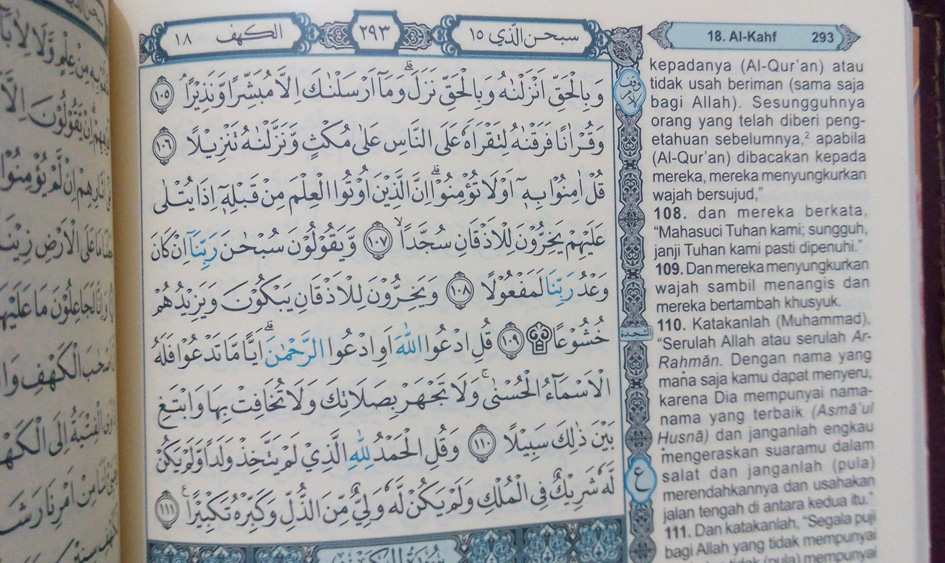 سبحن الذي ١٥
٢٩٣
الكهف ١٨
وَبِالْحَقِّ اَنْزَلْنٰهُ وَبِالْحَقِّ نَزَلَۗ وَمَآ اَرْسَلْنٰكَ اِلَّا مُبَشِّرًا وَّنَذِيْرًاۘ ١٠٥
وَقُرْاٰنًا فَرَقْنٰهُ لِتَقْرَاَهٗ عَلَى النَّاسِ عَلٰى مُكْثٍ وَّنَزَّلْنٰهُ تَنْزِيْلًا ١٠٦
قُلْ اٰمِنُوْا بِهٖٓ اَوْ لَا تُؤْمِنُوْاۗ اِنَّ الَّذِيْنَ اُوْتُوا الْعِلْمَ مِنْ قَبْلِهٖٓ اِذَا يُتْلٰى
عَلَيْهِمْ يَخِرُّوْنَ لِلْاَذْقَانِ سُجَّدًاۙ ١٠٧ وَّيَقُوْلُوْنَ سُبْحٰنَ رَبِّنَآ اِنْ كَانَ
وَعْدُ رَبِّنَا لَمَفْعُوْلًا ١٠٨ وَيَخِرُّوْنَ لِلْاَذْقَانِ يَبْكُوْنَ وَيَزِيْدُهُمْ
خُشُوْعًا ۩ ١٠٩ قُلِ ادْعُوا اللّٰهَ اَوِ ادْعُوا الرَّحْمٰنَۗ اَيًّا مَّا تَدْعُوْا فَلَهُ
الْاَسْمَاۤءُ الْحُسْنٰىۚ وَلَا تَجْهَرْ بِصَلَاتِكَ وَلَا تُخَافِتْ بِهَا وَابْتَغِ
بَيْنَ ذٰلِكَ سَبِيْلًا ١١٠ وَقُلِ الْحَمْدُ لِلّٰهِ الَّذِيْ لَمْ يَتَّخِذْ وَلَدًا وَّلَمْ يَكُنْ
لَّهٗ شَرِيْكٌ فِى الْمُلْكِ وَلَمْ يَكُنْ لَّهٗ وَلِيٌّ مِّنَ الذُّلِّ وَكَبِّرْهُ تَكْبِيْرًا ࣖ ١١١
18. Al-Kahf
293
kepadanya (Al-Qur'an) atau
tidak usah beriman (sama saja
bagi Allah). Sesungguhnya
orang yang telah diberi peng-
etahuan sebelumnya,² apabila
(Al-Qur'an) dibacakan kepada
mereka, mereka menyungkurkan
wajah bersujud,"
108. dan mereka berkata,
"Mahasuci Tuhan kami; sungguh,
janji Tuhan kami pasti dipenuhi."
109. Dan mereka menyungkurkan
wajah sambil menangis dan
mereka bertambah khusyuk.
110. Katakanlah (Muhammad),
"Serulah Allah atau serulah Ar-
Rahmān. Dengan nama yang
mana saja kamu dapat menyeru,
karena Dia mempunyai nama-
nama yang terbaik (Asmā'ul
Husnā) dan janganlah engkau
mengeraskan suaramu dalam
salat dan janganlah (pula)
merendahkannya dan usahakan
jalan tengah di antara kedua itu."
111. Dan katakanlah, "Segala puji
bagi Allah yang tidak mempunyai
(pula) mempunyai